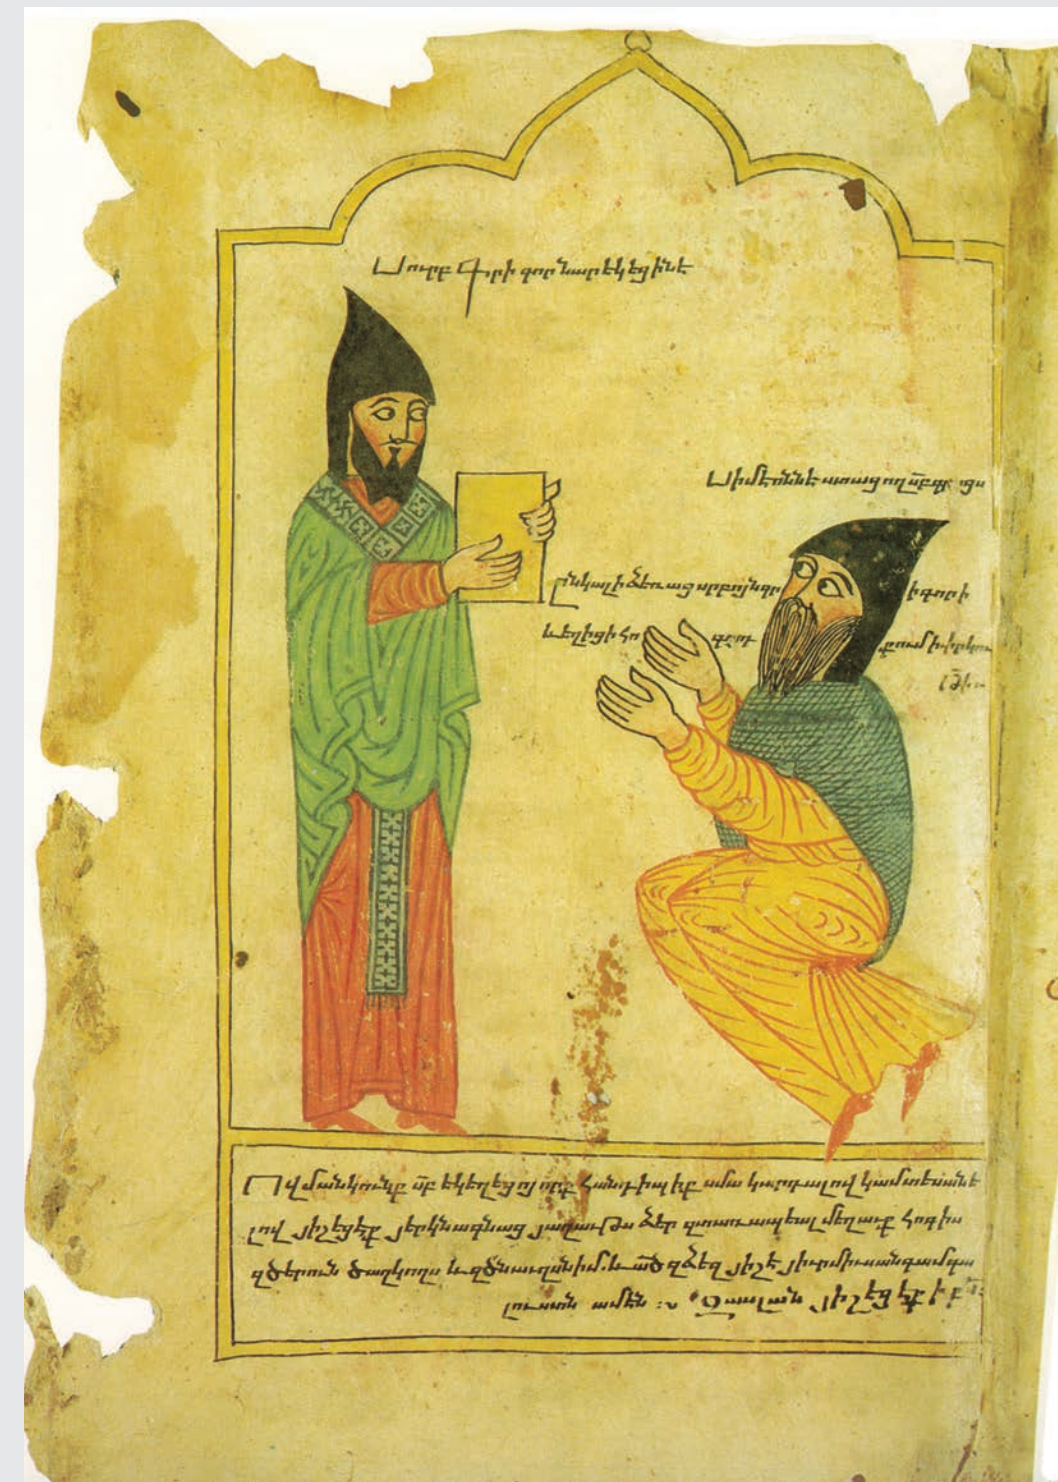 Սուրբ Գրիգոր Նարեկեցին է
Սիմէոնն է ստացող սբ գր
Ընկալ ի ձեռաց սրբոյն Գրիգորի
և եղիցի հոգւոտ քում ի փրկու
թի
Ով մանկունք սբ եկեղեցոյ որք հանդիպիք սմա կարդալով կամ տեսանե
լով յիշեցէք յերկնագնաց յաղաւթս ձեր զտառապեալ մեղաւք հոգիս
զծերուն ծաղկողս և զծնաւղսն իմ. և ած զձեզ յիշէ
լուստն ամեն :~ յիշեցէք ի